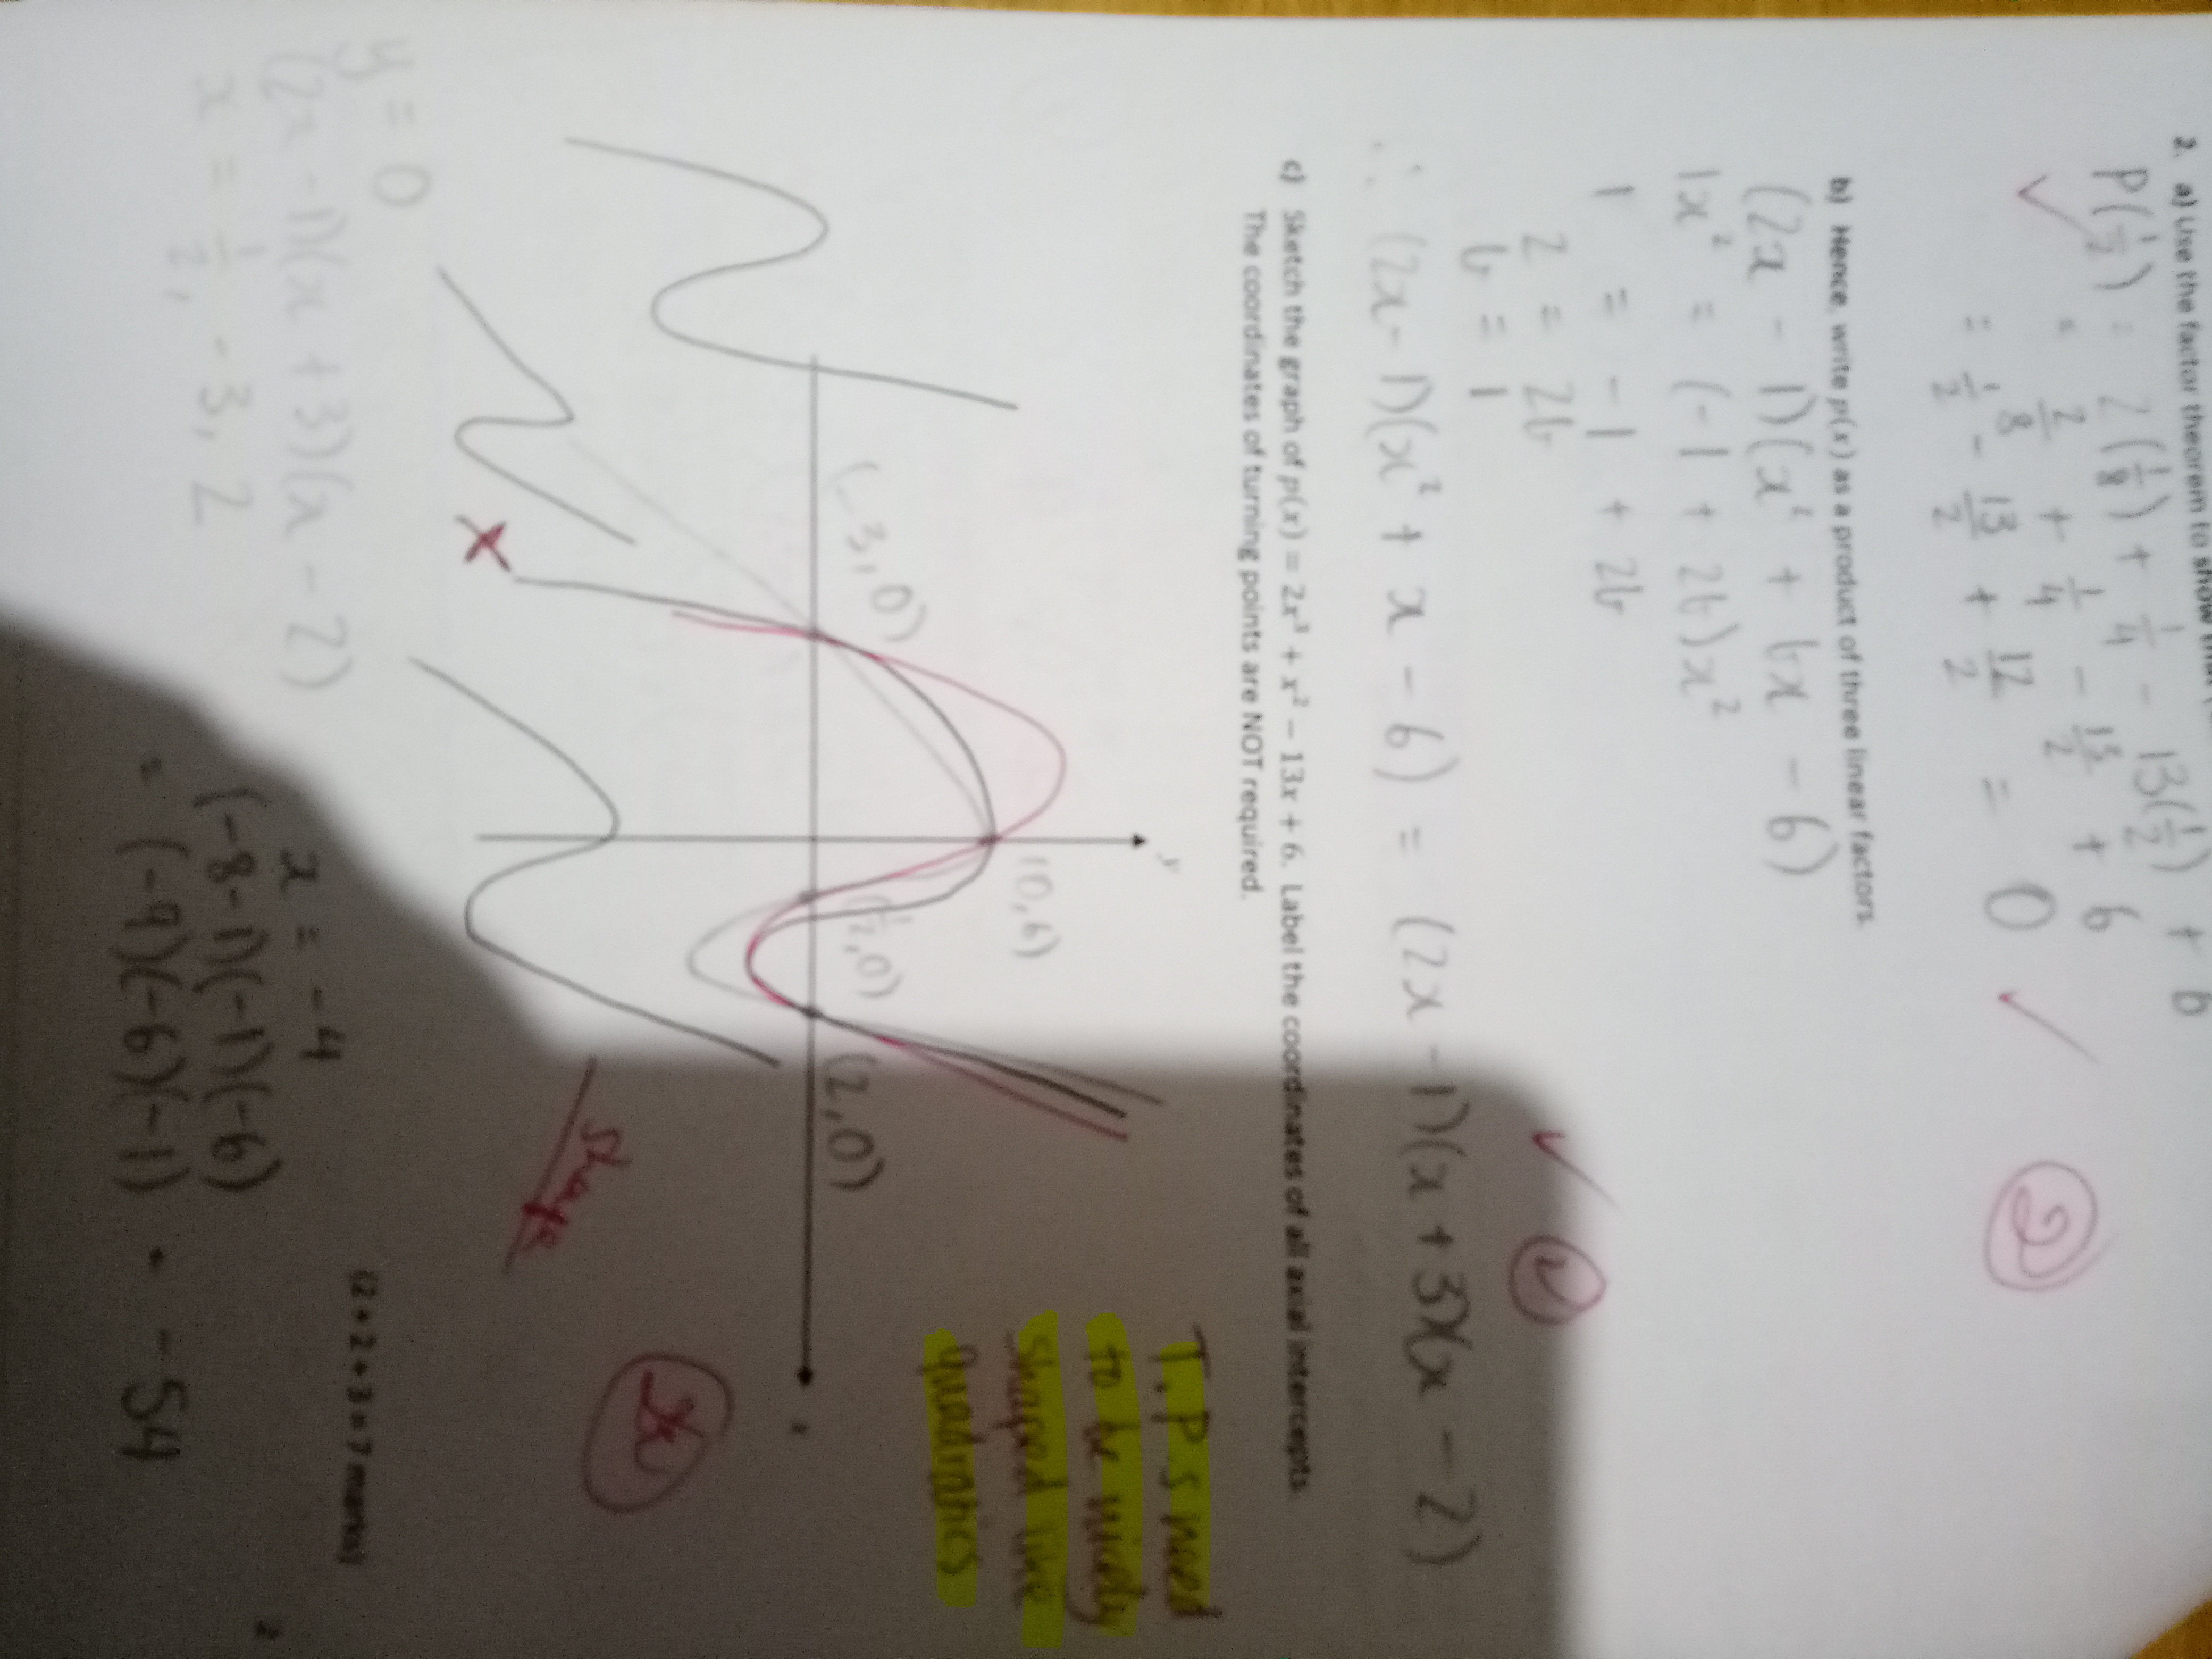 2. a) Use the factor theorem to show
P(1/2) = 2(1/8) + 1/4 - 13(1/2) + 6
= 2/8 + 1/4 - 13/2 + 6
= 1/2 - 13/2 + 12/2 = 0
2
b) Hence, write p(x) as a product of three linear factors.
(2x - 1)(x² + bx - 6)
1x² = (-1 + 2b)x²
1 = -1 + 2b
2 = 2b
b = 1
∴ (2x-1)(x² + x - 6) = (2x-1)(x+3)(x-2)
c) Sketch the graph of p(x) = 2x³ + x² - 13x + 6. Label the coordinates of all axial intercepts.
The coordinates of turning points are NOT required.
y
(0,6)
T.P's need
to be nicely
shaped like
quadratics
(-3,0)
(1/2,0)
(2,0)
x
shape
y = 0
(2x-1)(x+3)(x-2)
x = 1/2, -3, 2
x = -4
(-8-1)(-1)(-6)
= (-9)(-6)(-1) = -54
(2 + 2 + 3 = 7 marks)
2